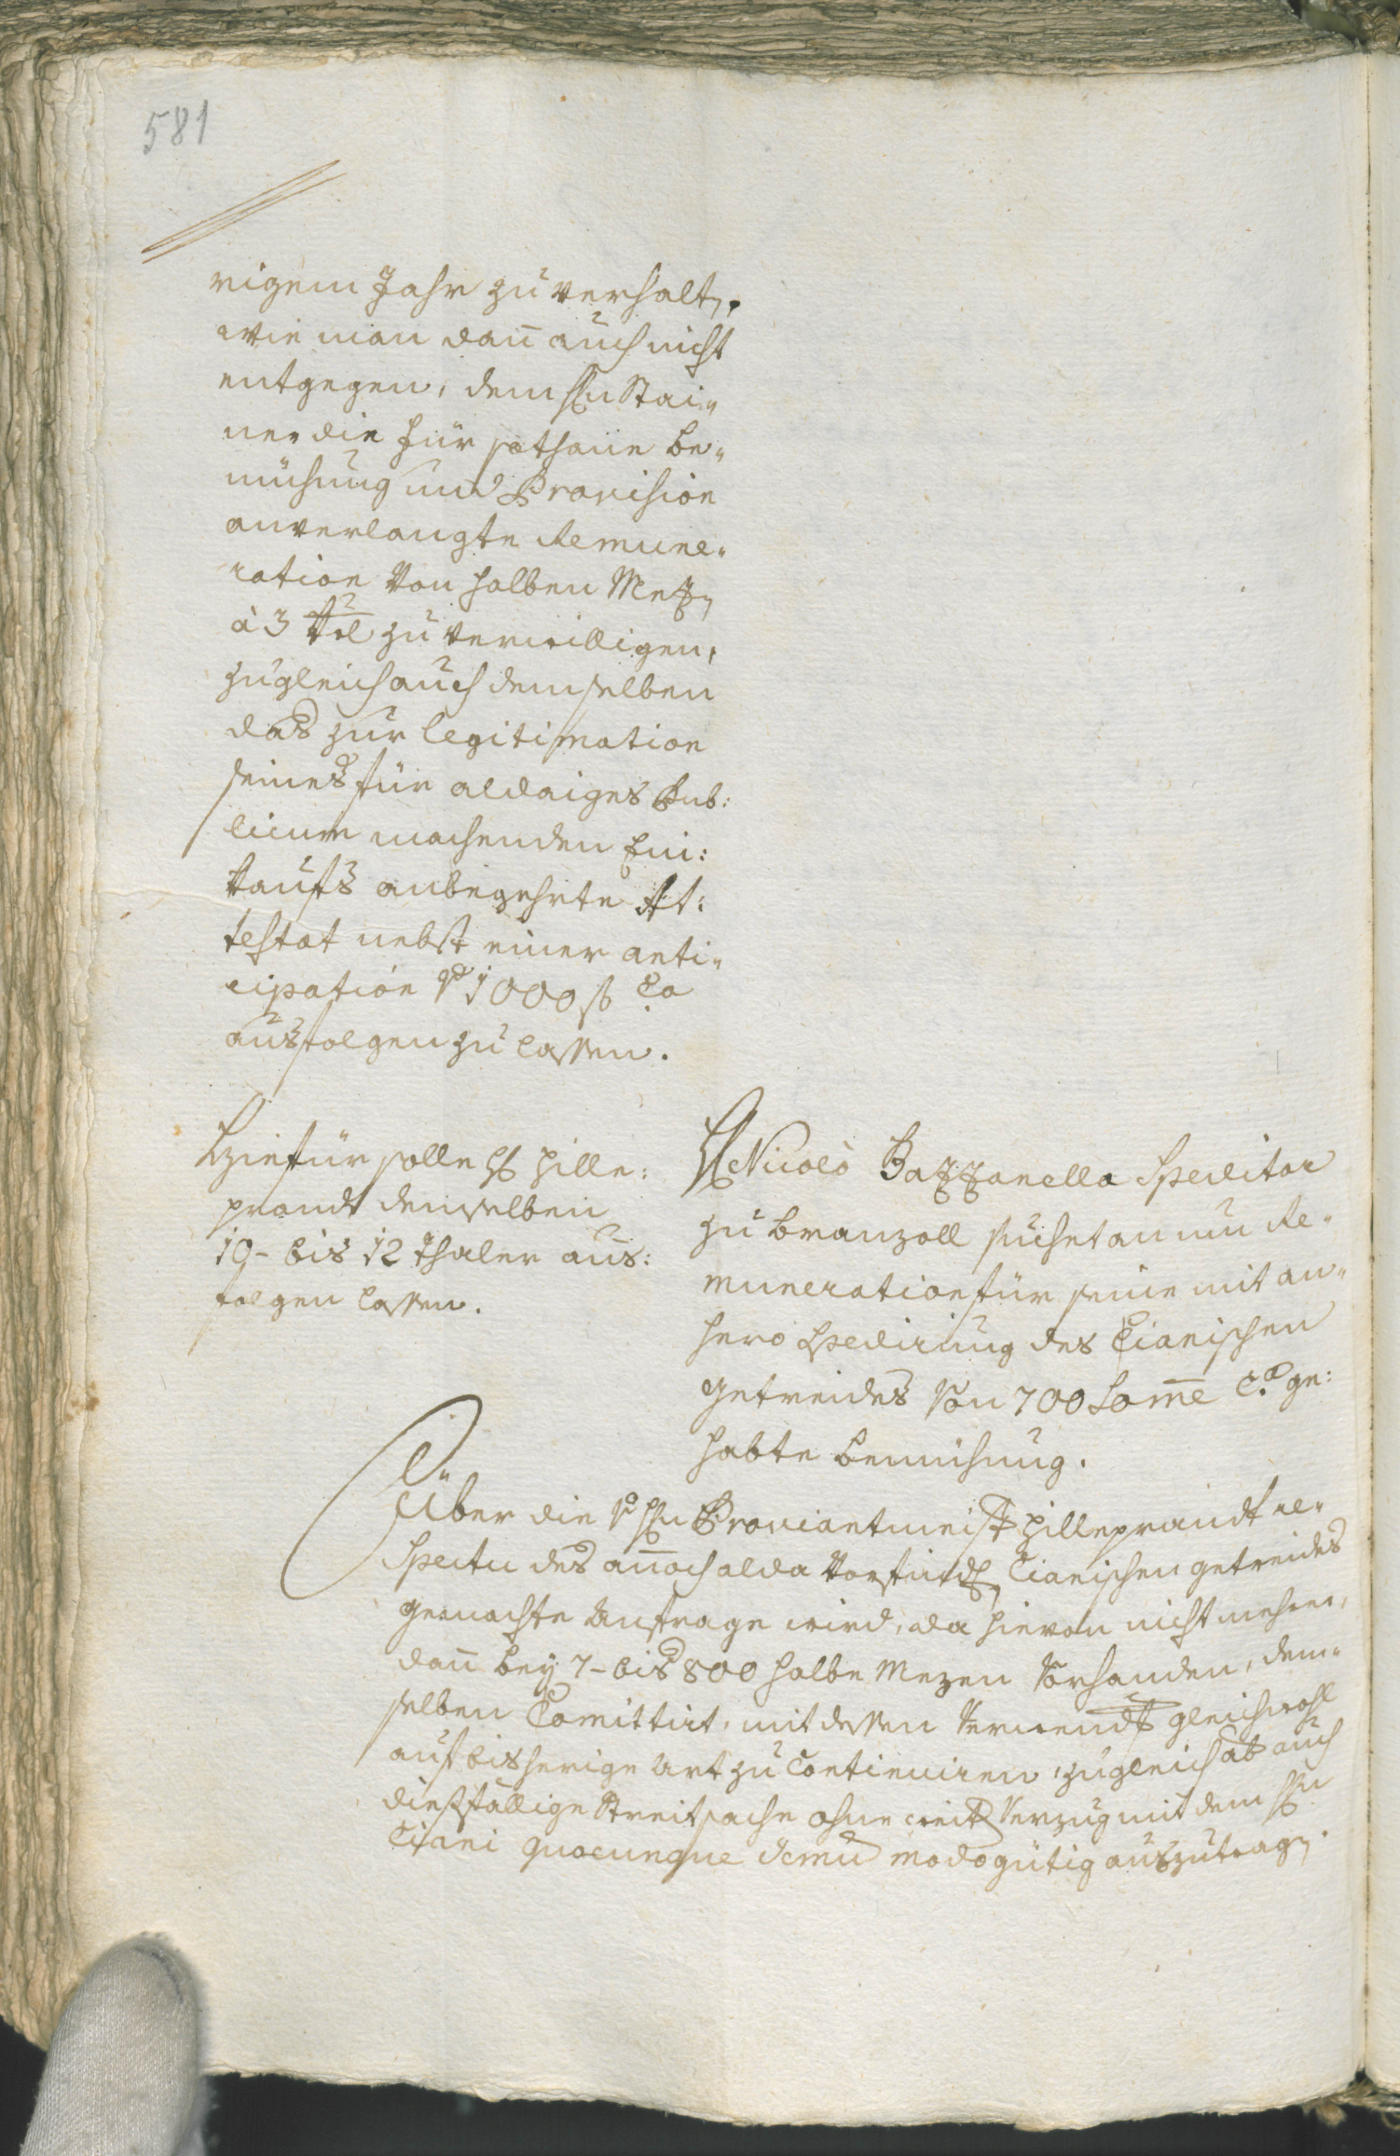 581
rigem Jahr zu verhalt,
wie man dan̄ auch nicht
entgegen, dem Hrn Stai„
ner die für sothane be„
mühung und Provision
anverlangte Remune„
ration von halben Mezen
à 3 zu verwilligen,
zugleich auch demselben
das zur legitimation
seines für aldaiges Pub:
licum machenden Ein:
kaufs anbegehrte At:
testat nebst einer anti„
cipation 1000 f Ca
ausfolgen zu lassen.
Hiefür solle H Hille:
prandt demselben
10 – bis 12 thaler aus:
folgen lassen.
H Nicolò Bazzanella Speditor
zu Branzoll suchet an um Re„
muneration für seine mit an„
hero Spedirung des Cianischen
getreides von 700 Som̄e Ca ge:
habte bemühung.
Über die Hrn Proviantmeist Hilleprandt re„
spectu des an̄och alda vorfindl Cianischen getreides
gemachte Anfrage wird, da hievon nicht mehrer,
dan̄ bey 7 – bis 800 halbe Mezen vorhanden, dem„
selben Comittirt, mit dessen Verwendt gleichwohl
auf bisherige Art zu Continuiren, zugleich ab auch
diesfällige Streitsache ohne weit Verzug mit dem Hrn
Ciani quocunque demū modo gütig auszutragn.